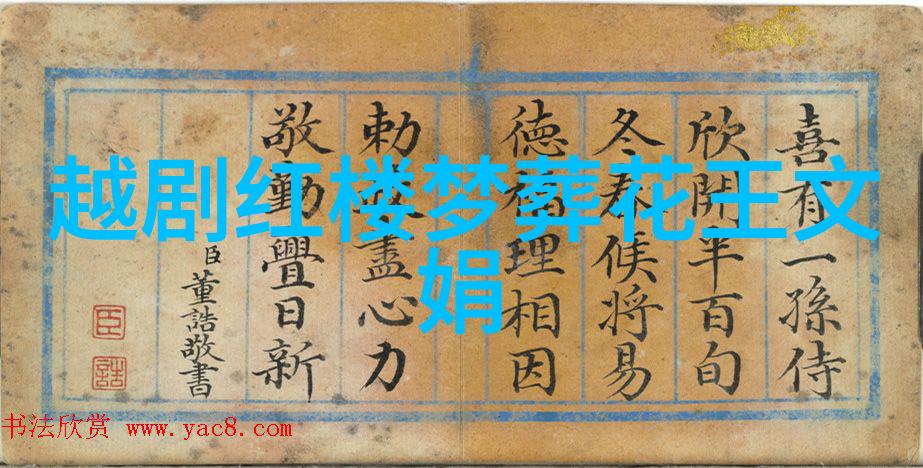 越剧红楼梦葬花王文
娟
喜有一孫侍
欣開半百旬
冬春候將易
德福理相因
勅盡心力
敬勤覺日新
臣董誥敬書
臣
誥
书法欣赏 www.yac8.com